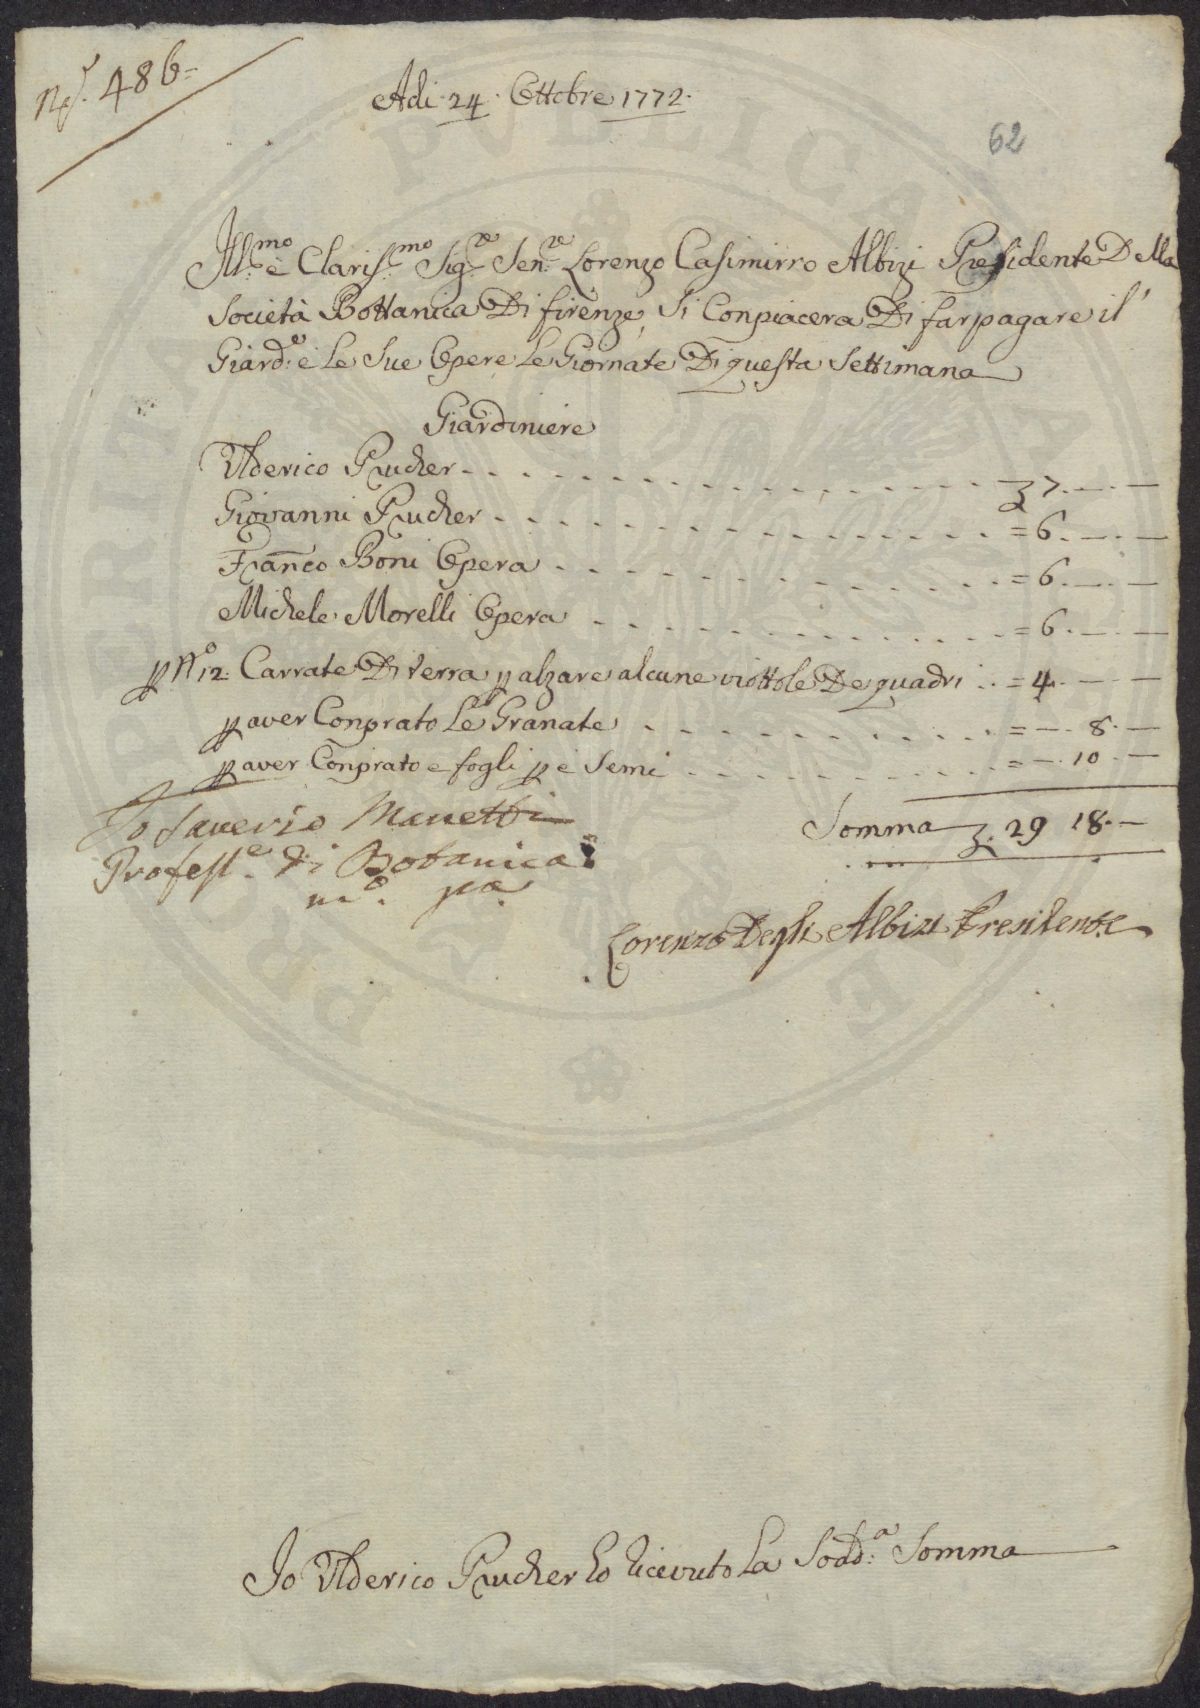 N.º 486=
Adi 24. Ottobre 1772.
62
Ill.mo è Claris.mo Sig.re Sen.re Lorenzo Casimirro Albizi Presidente Della
Società Bottanica Di firenze, Si Conpiacera Di far pagare il
Giard.e e Le Sue Opere Le Giornate Di questa Settimana
Giardiniere
Ulderico Prucher - - - £ 7. — . —
Giovanni Prucher - - - = 6. — . —
Fran.co Boni Opera - - - = 6. — . —
Michele Morelli Opera - - - = 6. — . —
p N.o 12. Carrate Di terra p alzare alcune viottole De quadri . . = 4. — . —
p aver Conprato Le Granate - - - = — . 8. —
p aver Conprato e fogli p e Semi - - - = — . 10. —
Somma £. 29 18. —
Io Saverio Manetti
Profess.e di Botanica
m.o pa.
Lorenzo Degli Albizi Presidente
Io Ulderico Prucher ho ricevuto La Sodd.a Somma